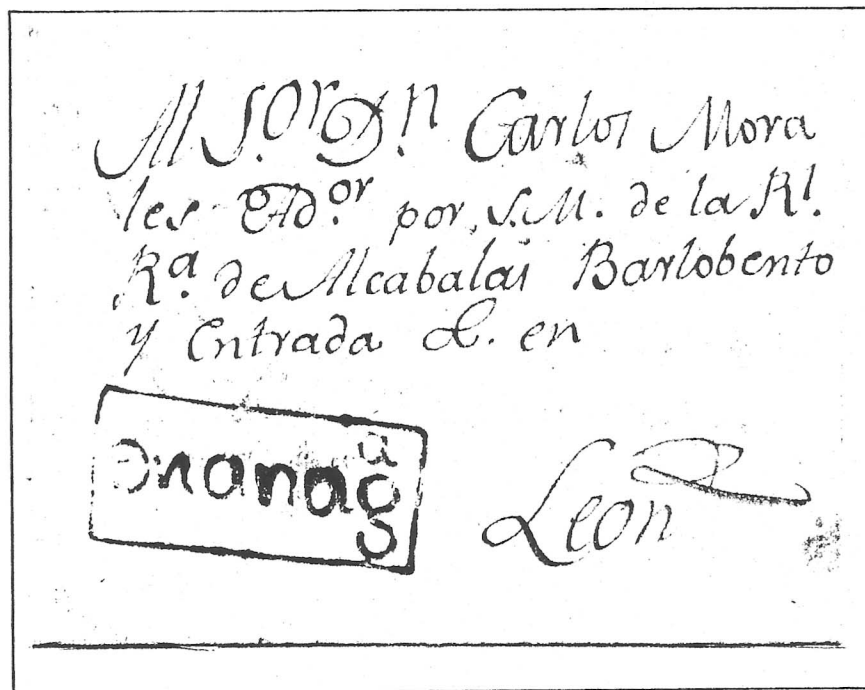 Al S.or D.n Carlos Mora
les por S.M. de la Rl.
Ra. de Alcabalas Barlobento
y Entrada &. en
Leon